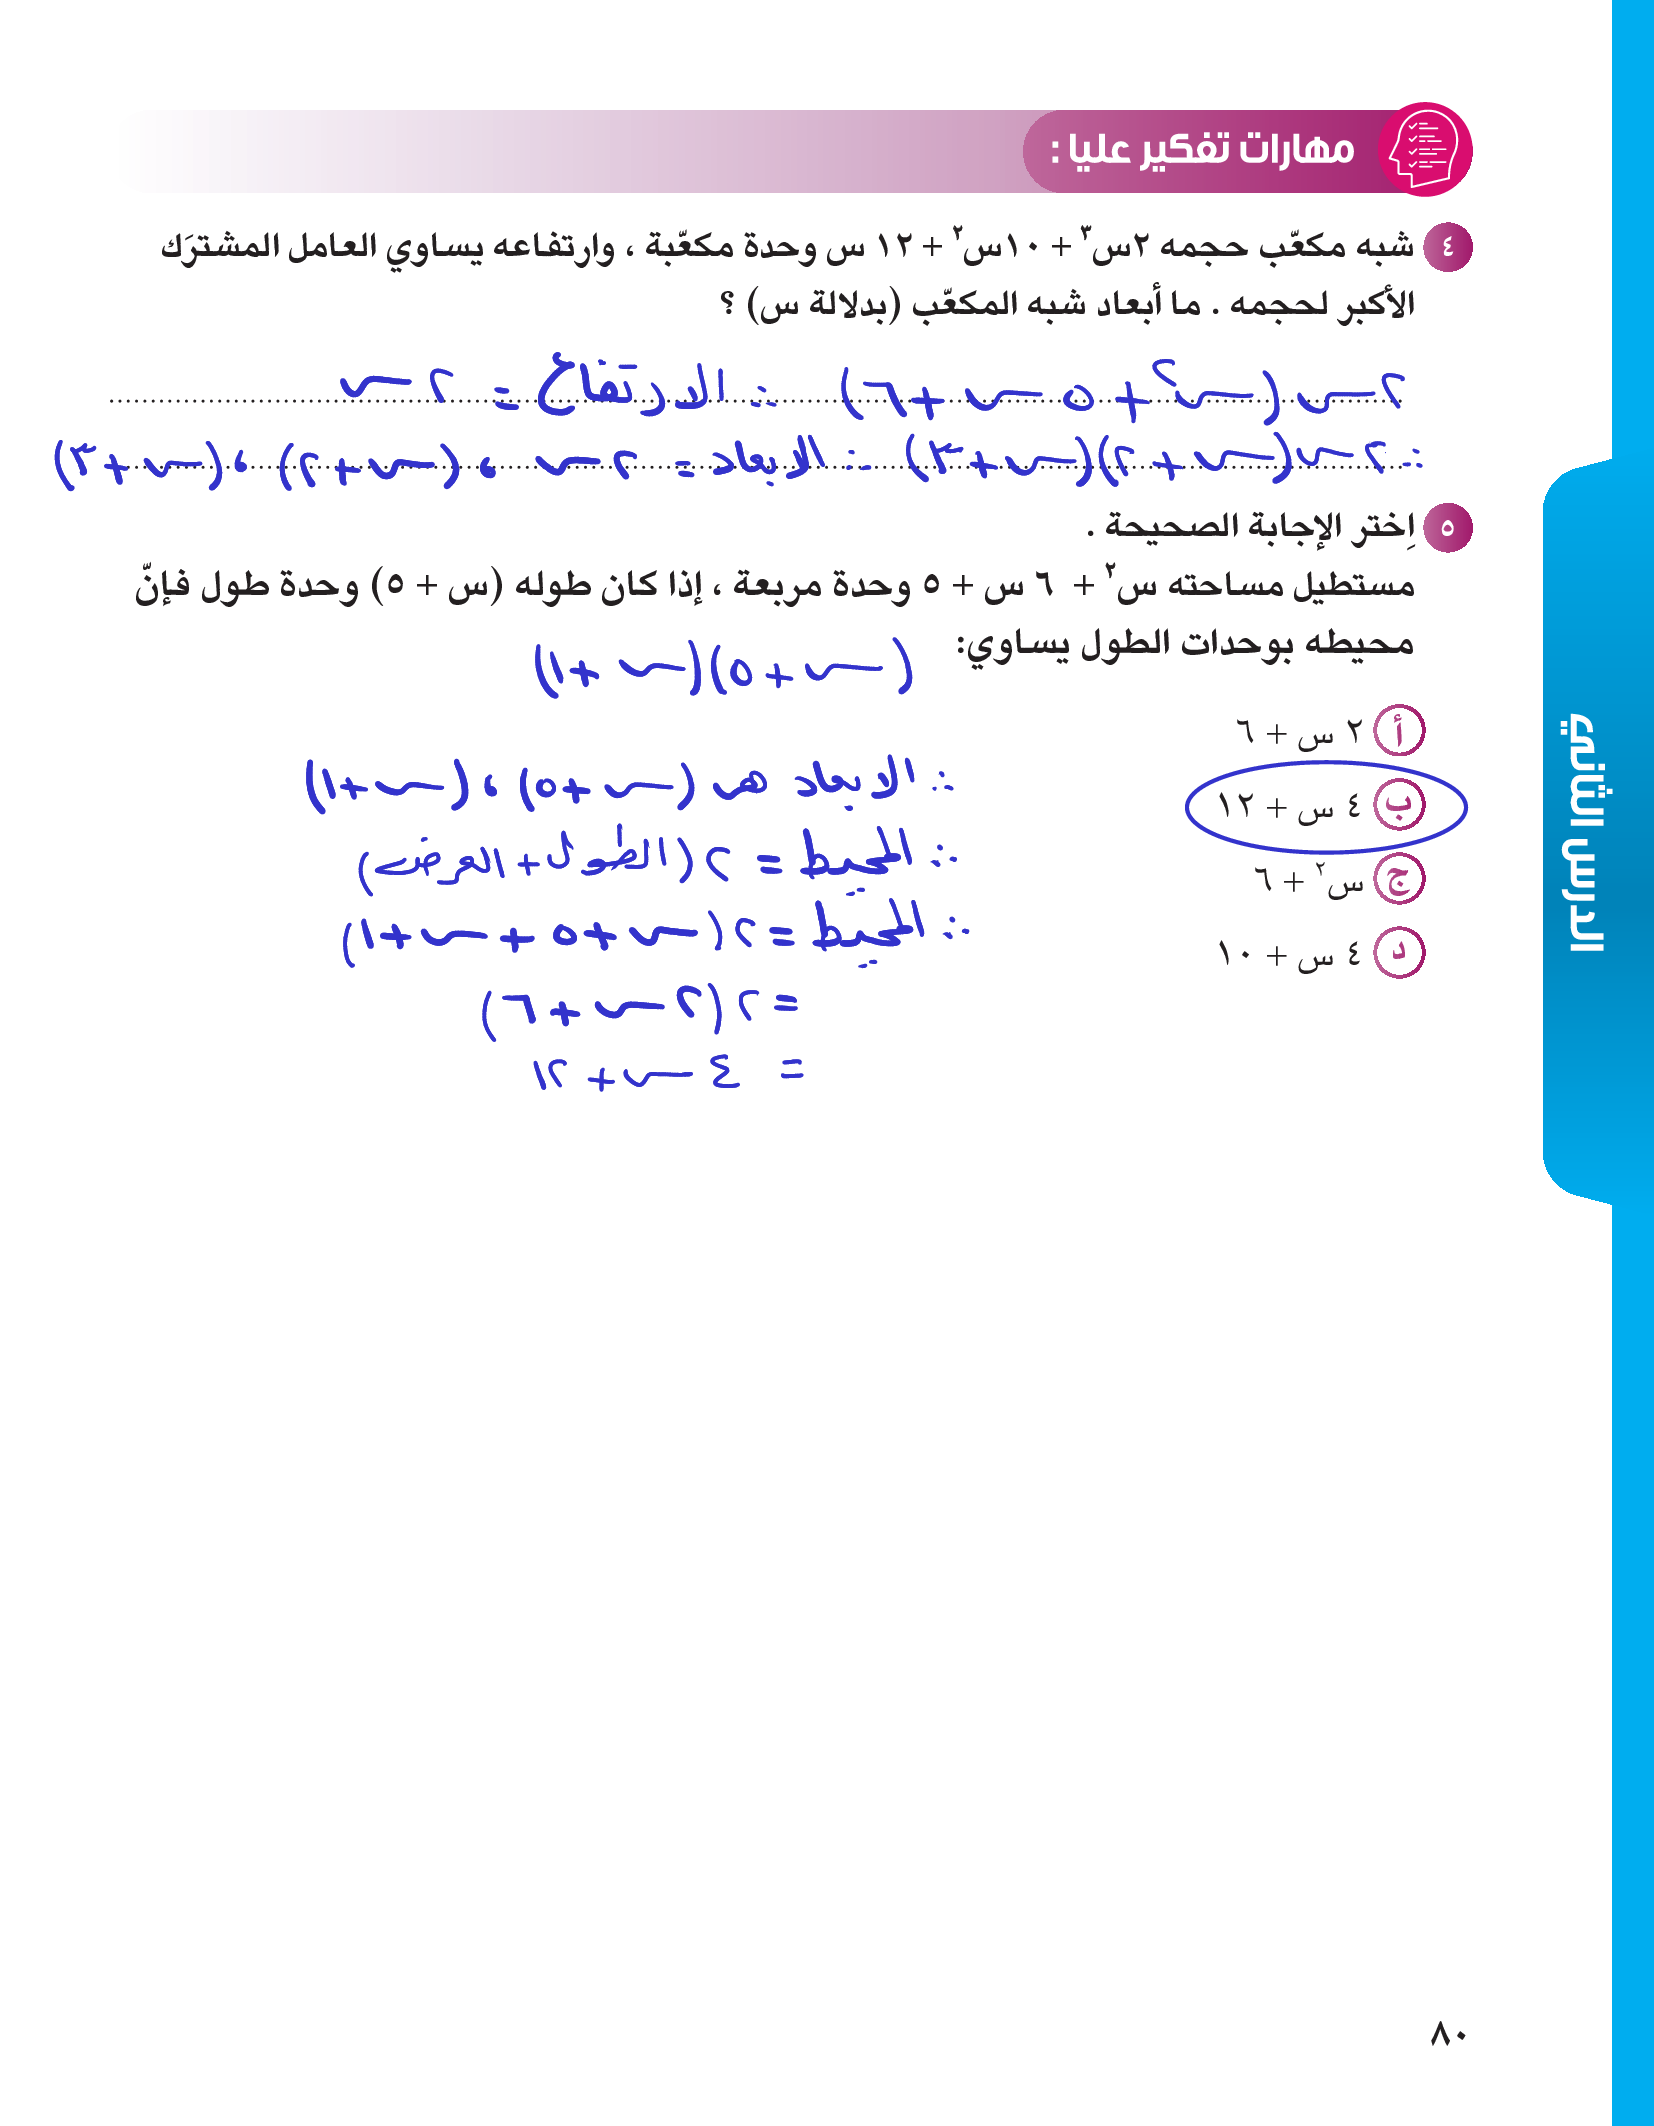 مهارات تفكير عليا :
٤ شبه مكعّب حجمه ٢س٣ + ١٠س٢ + ١٢ س وحدة مكعّبة ، وارتفاعه يساوي العامل المشترَك
الأكبر لحجمه . ما أبعاد شبه المكعّب (بدلالة س) ؟
٢س (س٢ + ٥س + ٦) ∴ الارتفاع = ٢س
∴ ٢س(س + ٢)(س + ٣) ∴ الابعاد = ٢س ، (س + ٢) ، (س + ٣)
٥ اِختر الإجابة الصحيحة .
مستطيل مساحته س٢ + ٦ س + ٥ وحدة مربعة ، إذا كان طوله (س + ٥) وحدة طول فإنّ
محيطه بوحدات الطول يساوي:
(س + ٥)(س + ١)
أ ٢ س + ٦
ب ٤ س + ١٢
ج س٢ + ٦
د ٤ س + ١٠
∴ الابعاد هى (س + ٥) ، (س + ١)
∴ المحيط = ٢ (الطول + العرض)
∴ المحيط = ٢ (س + ٥ + س + ١)
= ٢ (٢س + ٦)
= ٤س + ١٢
الدرس الثاني
٨٠